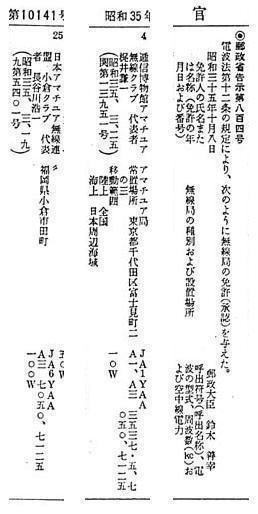 第10141号
昭和35年
官
◎郵政省告示第八百四号
電波法第十二条の規定により、次のように無線局の免許(承認)を与えた。
昭和三十五年十月八日
郵政大臣 鈴木 善幸
免許人の氏名また
は名称(免許の年
月日および番号)
無線局の種別および設置場所
呼出符号(呼出名称)、電
波の型式、周波数(kc)お
よび空中線電力
4
逓信博物館アマチュア
無線クラブ 代表者
梶井謙一
(昭和三五、三、一五)
(関第一三九五一号)
アマチュア局
常置場所 東京都千代田区富士見町二
の三
移動範囲 陸上 全国
海上 日本周辺海域
JA1YAA
A一、A三 三五三七・五、七
〇五〇、七一二五
一〇W
25
日本アマチュア無線連
盟 小倉クラブ 代表
者 長谷川浩一
(昭和三五、三、一九)
(九第五四〇一号)
福岡県小倉市田町
五〇W
JA6YAA
A三 七〇五〇、七一二五
一〇W